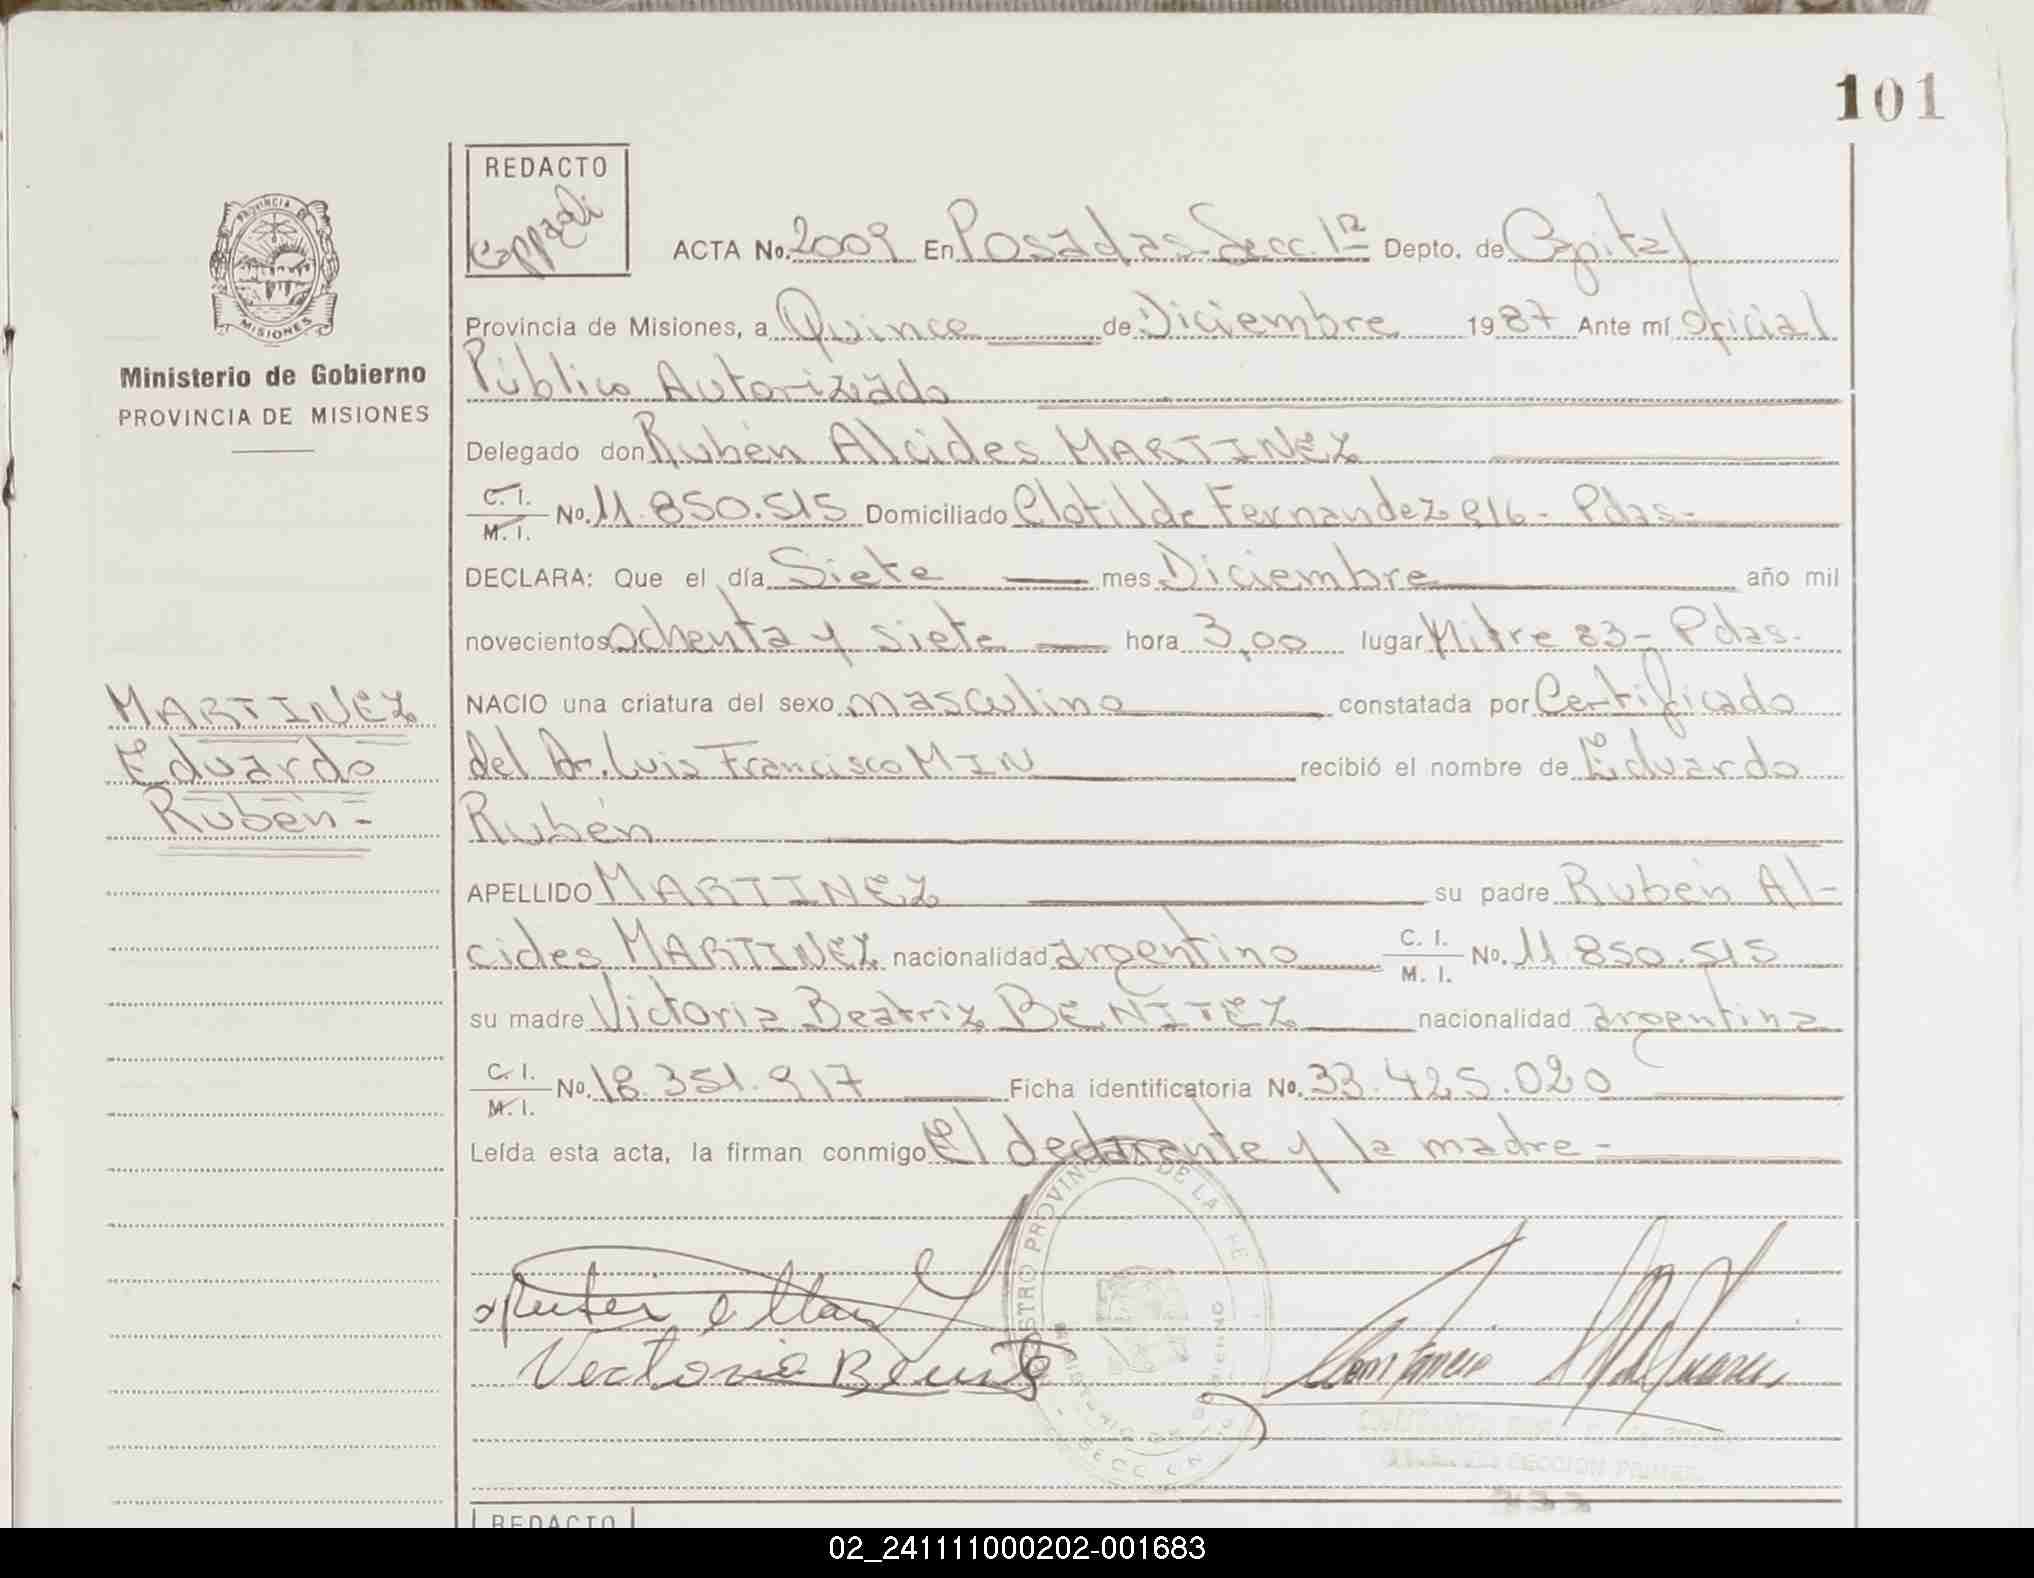 101
REDACTO
PROVINCIA DE
MISIONES
Ministerio de Gobierno
PROVINCIA DE MISIONES
ACTA No. 2009 En Posadas-Secc. 1ª Depto. de Capital
Provincia de Misiones, a Quince de Diciembre 1987 Ante mí Oficial
Público Autorizado
Delegado don Rubén Alcides MARTINEZ
C. I.
M. I. No. 11.850.515 Domiciliado Clotilde Fernandez 916 - Pdas-
DECLARA: Que el día Siete mes Diciembre año mil
novecientos ochenta y siete hora 3,00 lugar Mitre 83 - Pdas.
NACIO una criatura del sexo masculino constatada por Certificado
del Dr. Luis Francisco MIN recibió el nombre de Eduardo
Rubén
APELLIDO MARTINEZ su padre Rubén Al-
cides MARTINEZ nacionalidad argentino C. I.
M. I. No. 11.850.515
su madre Victoria Beatriz BENITEZ nacionalidad argentina
C. I.
M. I. No. 18.351.917 Ficha identificatoria No. 33.425.020
Leída esta acta, la firman conmigo El declarante y la madre -
MARTINEZ
Eduardo
Rubén -
DE LA
SECCION
REDACTO
02_241111000202-001683